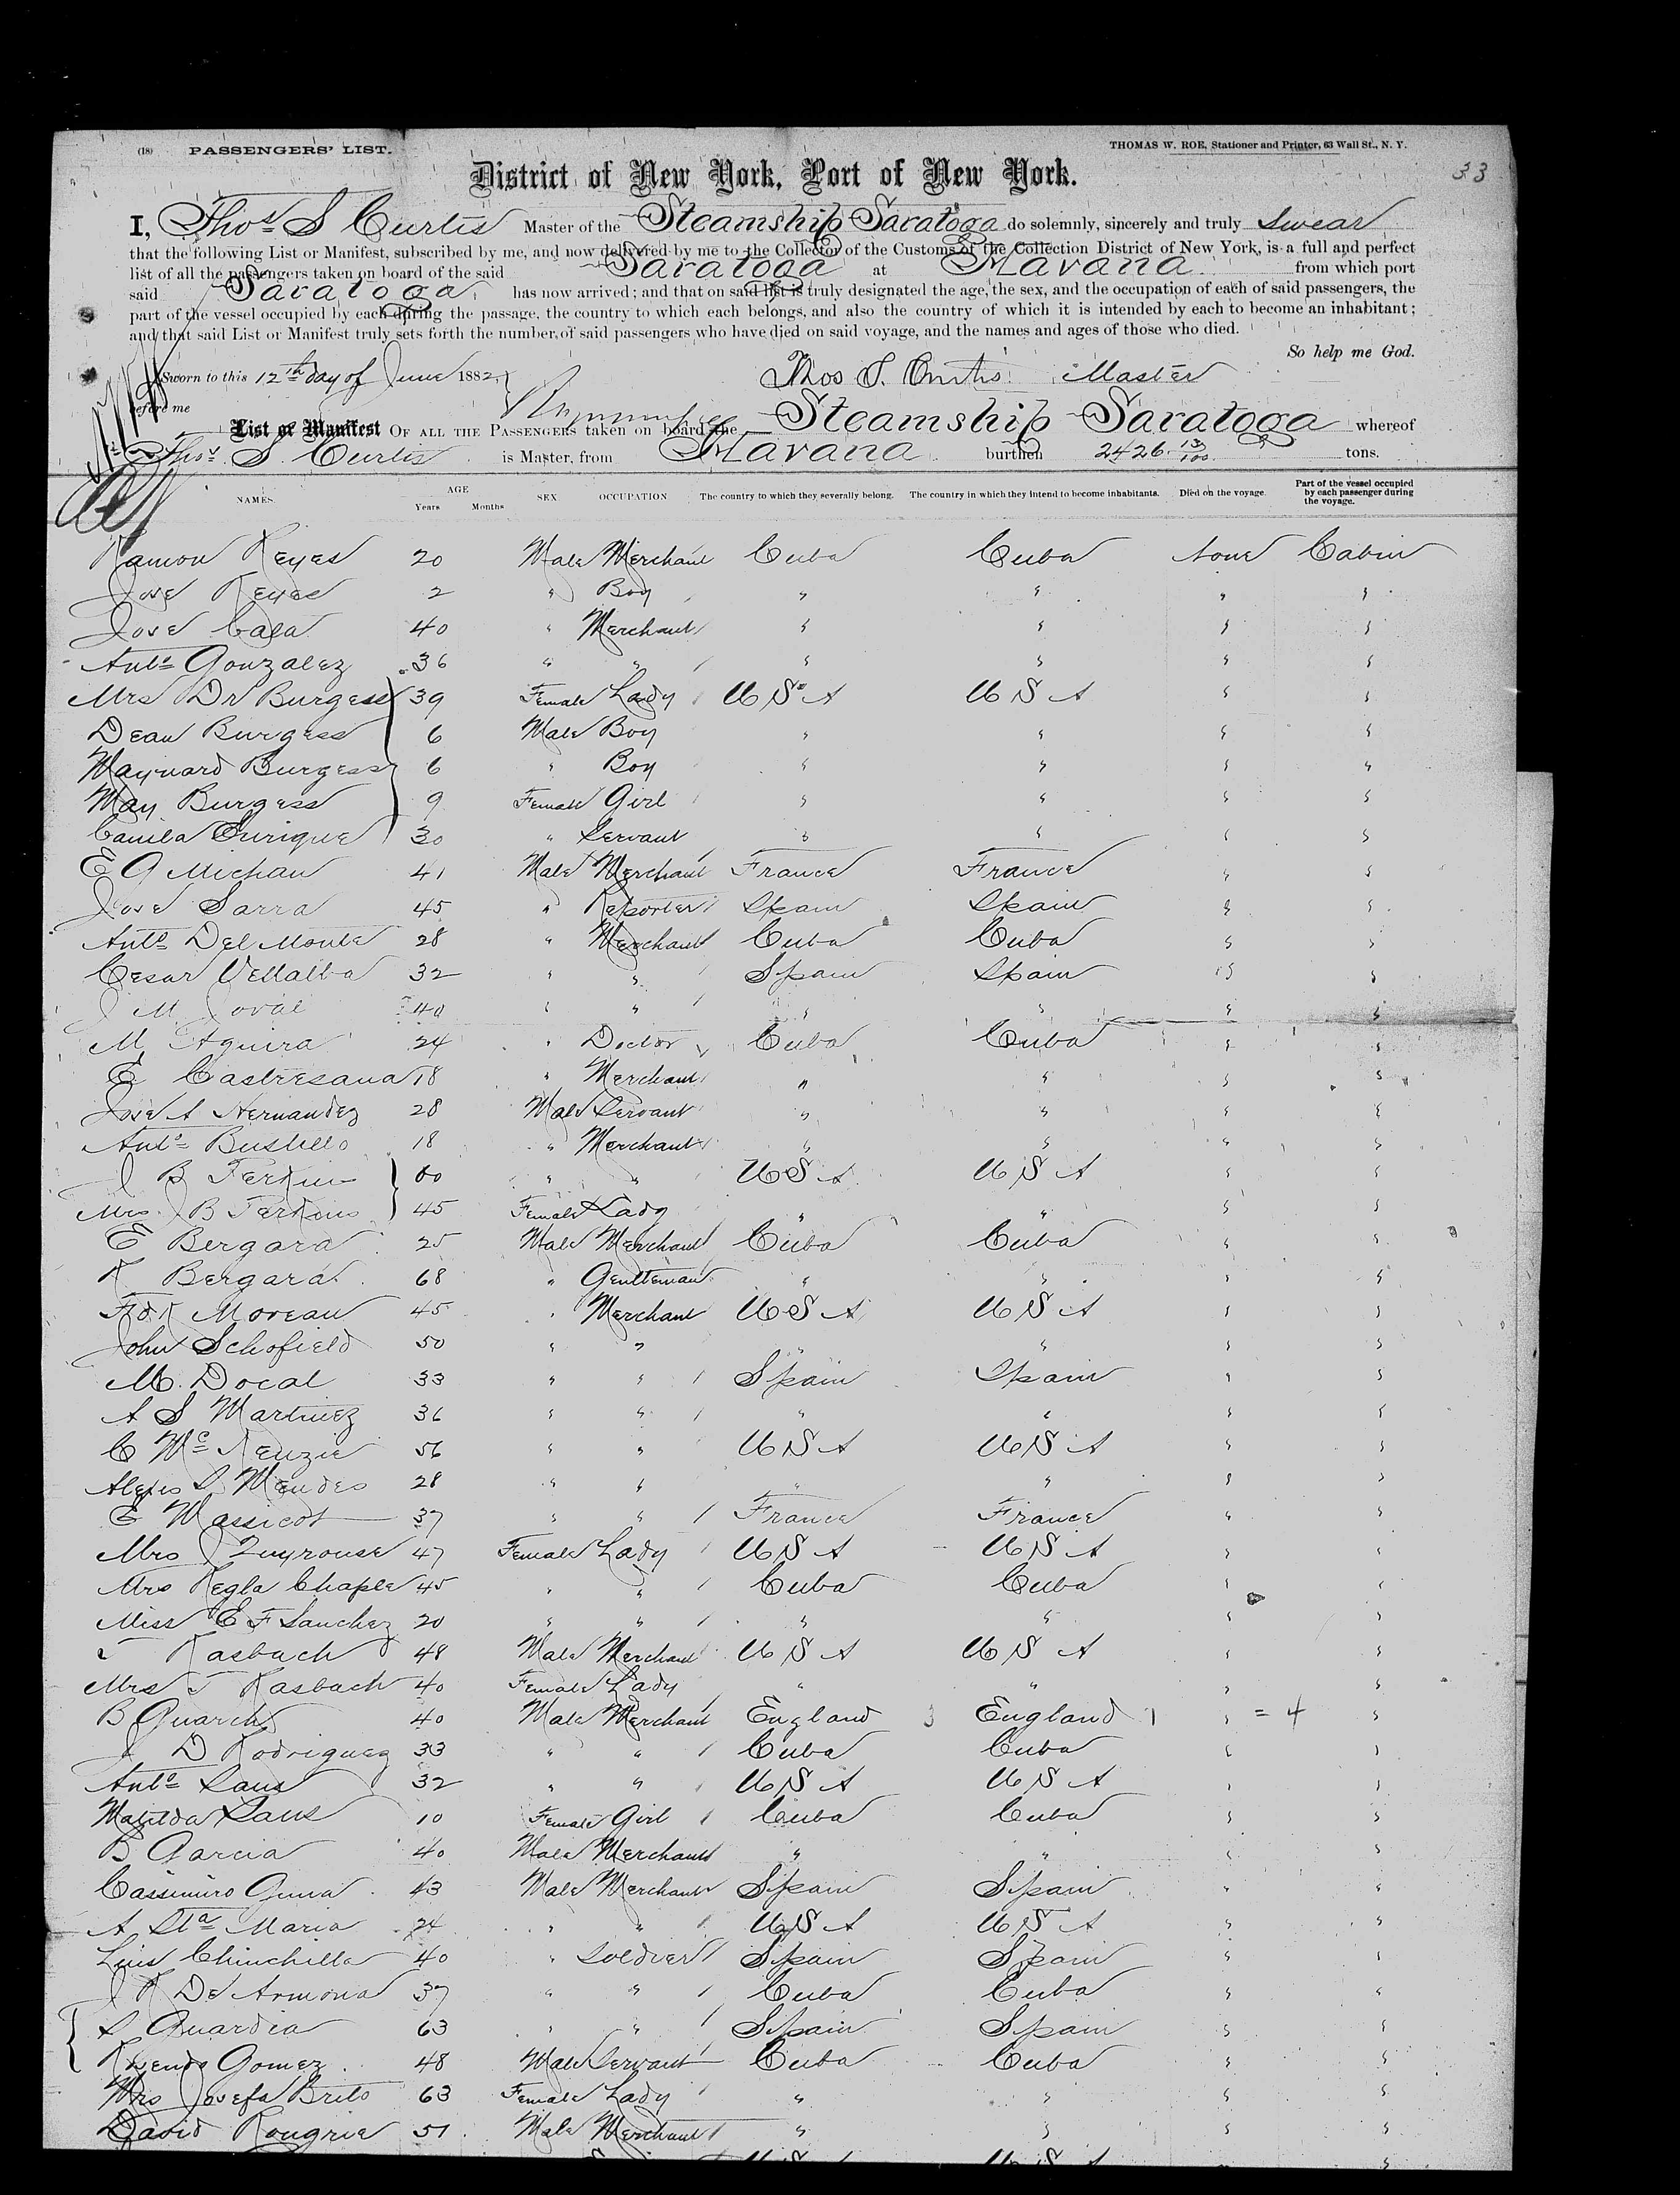 (18) PASSENGERS' LIST. THOMAS W. ROE, Stationer and Printer, 63 Wall St., N. Y.
District of New York, Port of New York. 33
I, Thos S Curtis Master of the Steamship Saratoga do solemnly, sincerely and truly Swear
that the following List or Manifest, subscribed by me, and now delivered by me to the Collector of the Customs of the Collection District of New York, is a full and perfect
list of all the passengers taken on board of the said Saratoga at Havana from which port
said Saratoga has now arrived; and that on said list is truly designated the age, the sex, and the occupation of each of said passengers, the
part of the vessel occupied by each during the passage, the country to which each belongs, and also the country of which it is intended by each to become an inhabitant;
and that said List or Manifest truly sets forth the number of said passengers who have died on said voyage, and the names and ages of those who died.
So help me God.
Sworn to this 12th day of June 1882 Thos S. Curtis Master
before me
List or Manifest OF ALL THE PASSENGERS taken on board the Steamship Saratoga whereof
Thos S. Curtis is Master, from Havana burthen 2426 13/100 tons.
NAMES. AGE Years Months SEX OCCUPATION The country to which they severally belong. The country in which they intend to become inhabitants. Died on the voyage. Part of the vessel occupied by each passenger during the voyage.
Ramon Reyes 20 Male Merchant Cuba Cuba None Cabin
Jose Reyes 2 " Boy " " " "
Jose Cala 40 " Merchant " " " "
Anto Gonzalez 36 " " " " " "
Mrs Dr Burgess 39 Female Lady U S A U S A " "
Dean Burgess 6 Male Boy " " " "
Maynard Burgess 6 " Boy " " " "
May Burgess 9 Female Girl " " " "
Camila Enrique 30 " Servant " " " "
E G Michan 41 Male Merchant France France " "
Jose Sarra 45 " Reporter Spain Spain " "
Anto Del Monte 28 " Merchant Cuba Cuba " "
Cesar Vellalba 32 " " Spain Spain " "
J M Joval 40 " " " " " "
M Aguira 24 " Doctor Cuba Cuba " "
E Castresana 18 " Merchant " " " "
Jose A Hernandez 28 Male Servant " " " "
Anto Bustello 18 " Merchant " " " "
J B Perkins 60 " " U S A U S A " "
Mrs J B Perkins 45 Female Lady " " " "
E Bergara 25 Male Merchant Cuba Cuba " "
R Bergara 68 " Gentleman " " " "
Fdk Moreau 45 " Merchant U S A U S A " "
John Schofield 50 " " " " " "
M. Docal 33 " " Spain Spain " "
A S Martinez 36 " " " " " "
C Mc Kenzie 56 " " U S A U S A " "
Alexis S Mendes 28 " " " " " "
E Massicot 37 " " France France " "
Mrs J Quyrouse 47 Female Lady U S A U S A " "
Mrs Regla Chaple 45 " " Cuba Cuba " "
Miss E F Sanchez 20 " " " " " "
T Rasbach 48 Male Merchant U S A U S A " "
Mrs T Rasbach 40 Female Lady " " " "
B Guarch 40 Male Merchant England 3 England 1 " = 4 "
J D Rodriguez 33 " " Cuba Cuba " "
Anto Saus 32 " " U S A U S A " "
Matilda Saus 10 Female Girl Cuba Cuba " "
B Garcia 40 Male Merchant " " " "
Cassimiro Guma 43 Male Merchant Spain Spain " "
A Sta Maria 24 " " U S A U S A " "
Luis Chinchilla 40 " Soldier Spain Spain " "
J R De Armona 37 " " Cuba Cuba " "
S Guardia 63 " " Spain Spain " "
Gomez 48 Male Servant Cuba Cuba " "
Mrs Josefa Brito 63 Female Lady " " " "
David Rougrie 51 Male Merchant " " " "
U S A U S A "